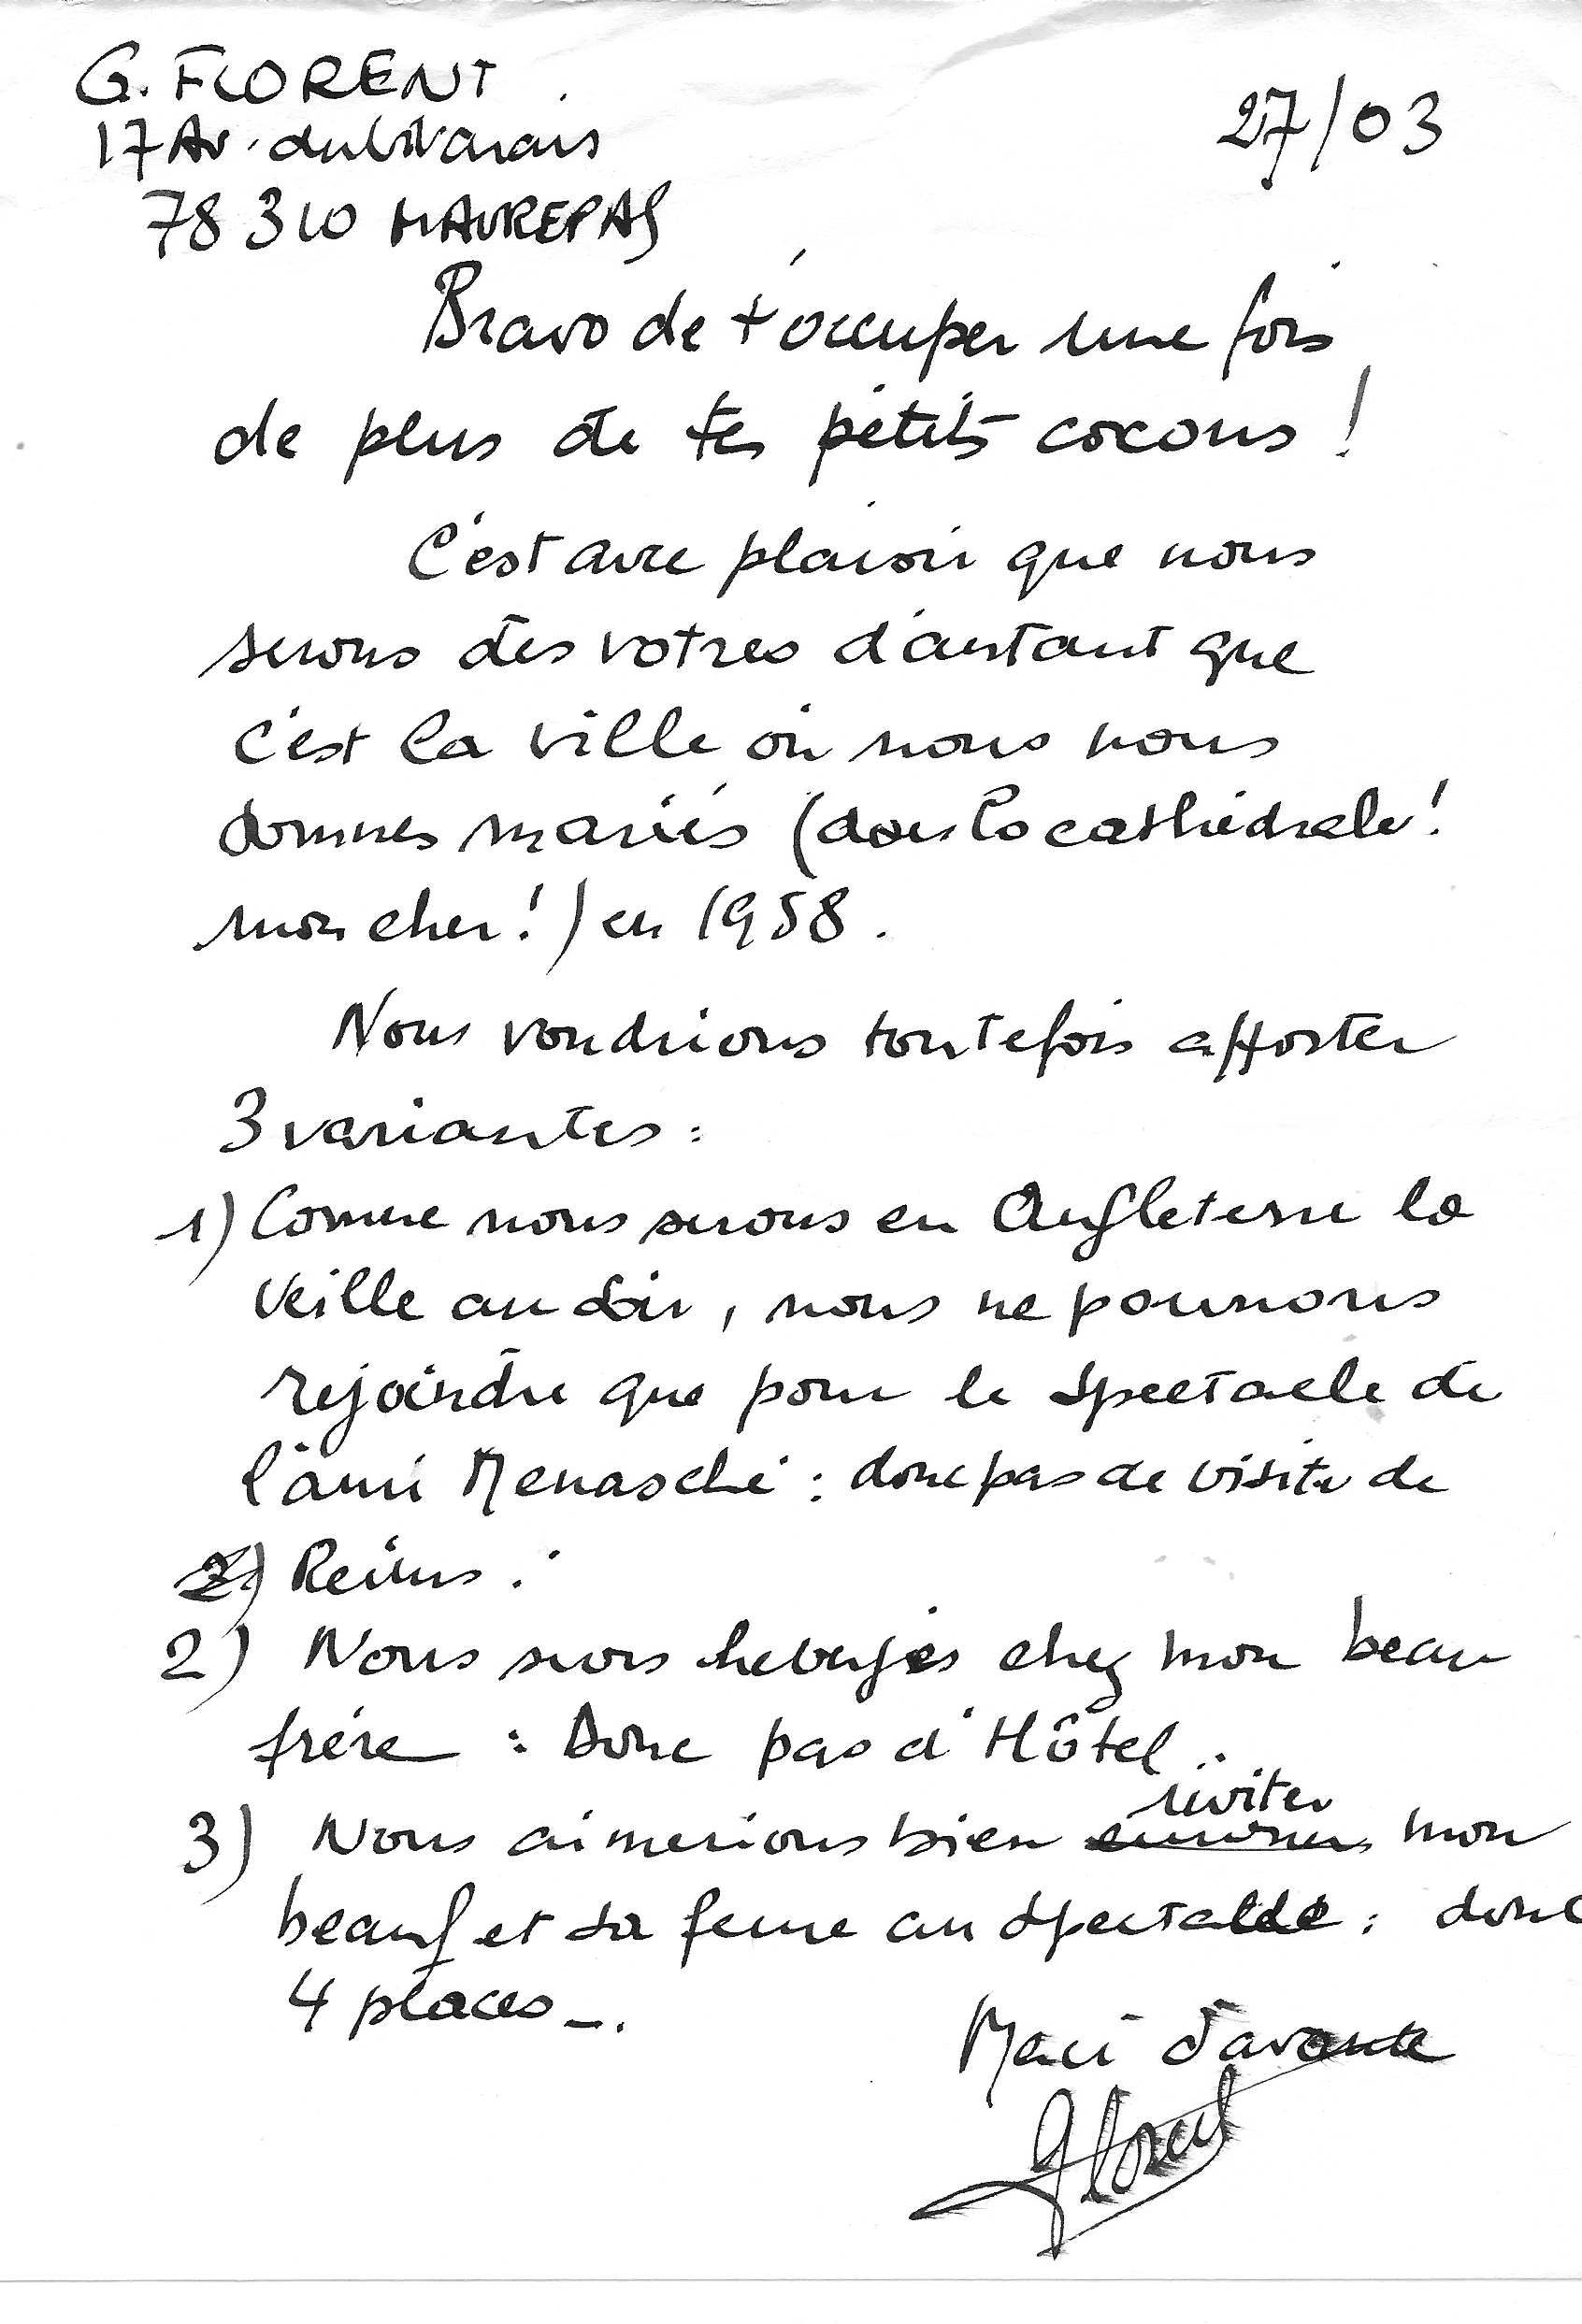 G. FLORENT
27/03
17 Av. du Vivarais
78310 MAUREPAS
Bravo de t'occuper une fois
de plus de tes petits cocons !
C'est avec plaisir que nous
serons des votres d'autant que
c'est la ville où nous nous
sommes mariés (dans la cathédrale !
mon cher !) en 1958.
Nous voudrions toutefois apporter
3 variantes :
1) Comme nous serons en Angleterre la
veille au soir, nous ne pourrons
rejoindre que pour le spectacle de
l'ami Menasché : donc pas de visite de
2) Reims.
2) Nous serons hebergés chez mon beau
frère : Donc pas d'Hôtel.
inviter
3) Nous aimerions bien mon
beauf et sa femme au spectacle : donc
4 places -.
Merci d'avance
GFlorent